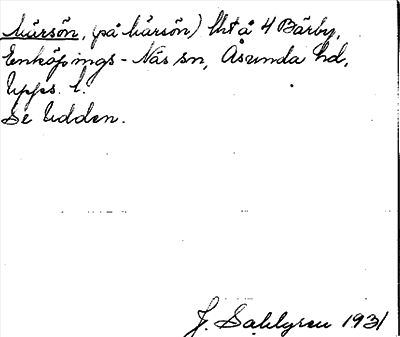 Kårsön, (på kårsön) lht å 4 Bärby,
Enköpings-Näs sn, Åsunda hd,
Upps. l.
Se Udden.
J. Sahlgren 1931